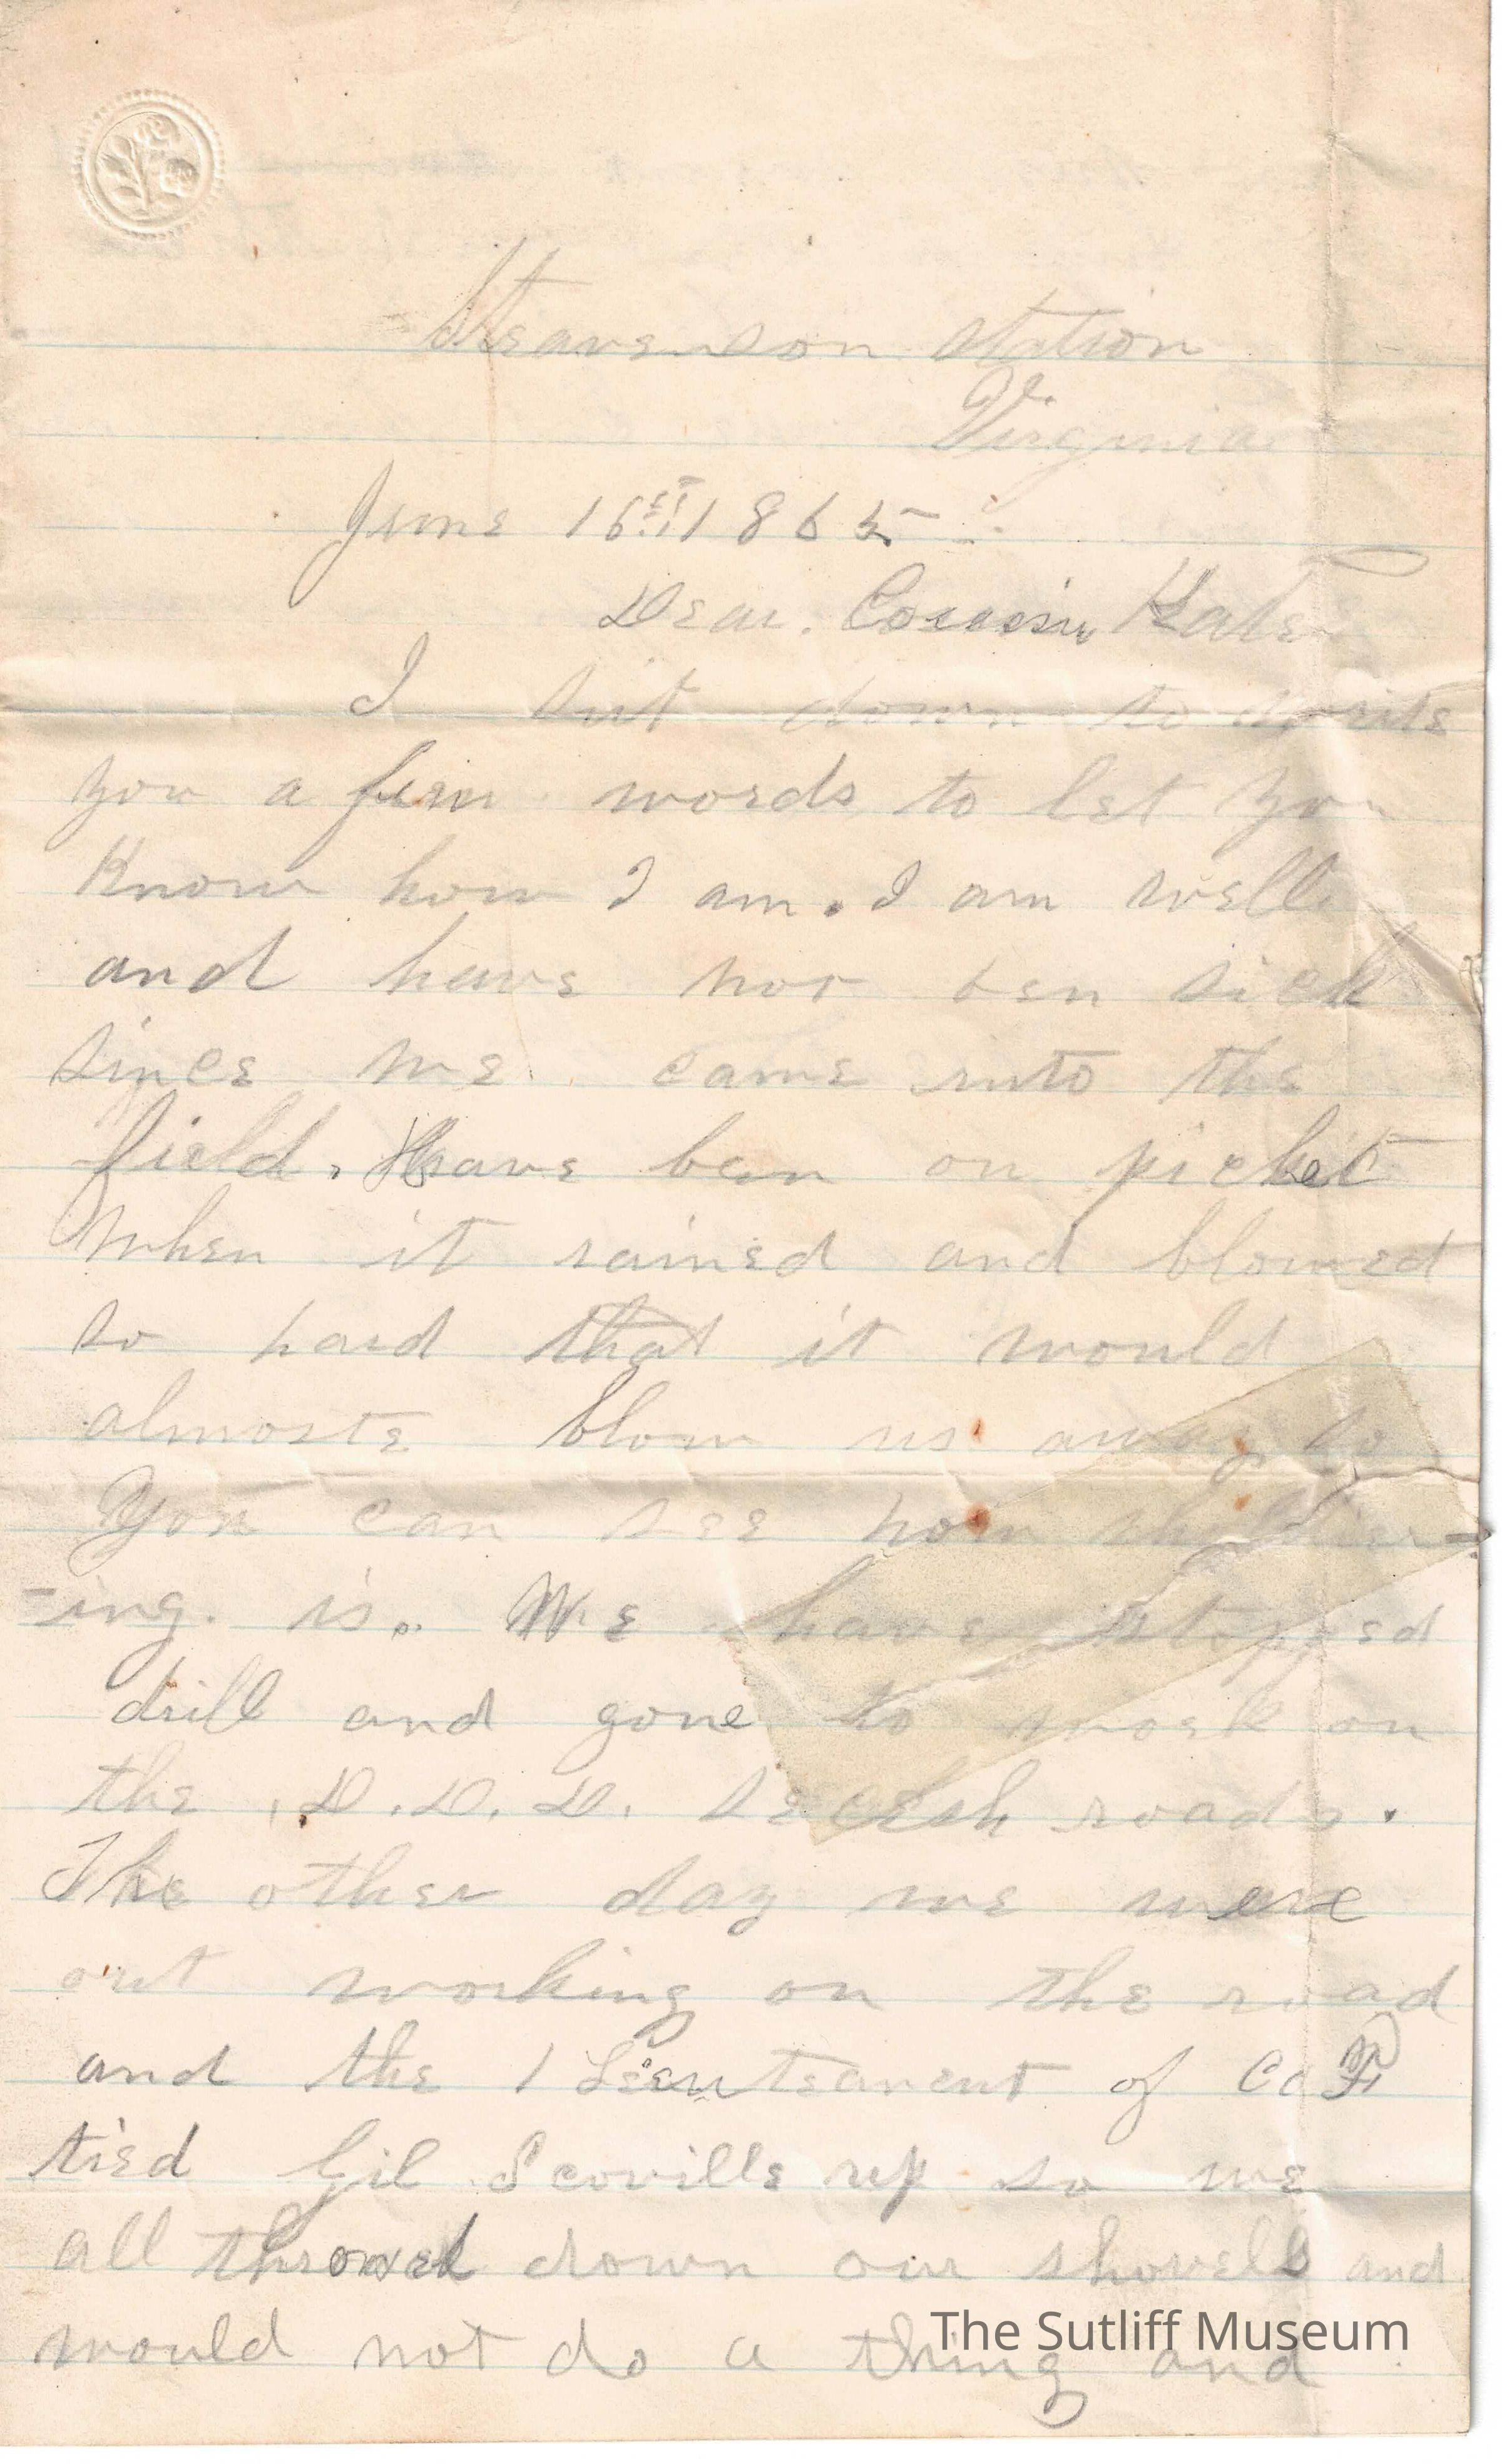 Steavenson station
Virginia
June 16th 1865
Dear. Cousin Kate
I sit down to write
you a few words to let you
Know how I am. I am well
and have nor ben sick
since we came into the
field. Have ben on picket
when it rained and blowed
so hard that it would
almoste blow us away so
You can see how
-ing. is. We have stopped
drill and gone to work on
the .D.D.D. secesh roads.
The other day we were
out working on the road
and the 1 Leeutenant of Co F
tied Gil Scoville up so we
all throwed down our shovells and
would not do a thing and
The Sutliff Museum